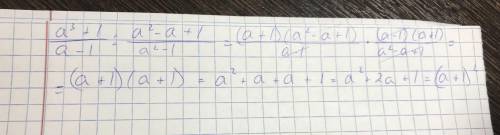 (a³+1)/(a-1) : (a²-a+1)/(a²-1) = (a+1)(a²-a+1)/(a-1) · (a-1)(a+1)/(a²-a+1) =
= (a+1)(a+1) = a²+a+a+1 = a²+2a+1 = (a+1)²